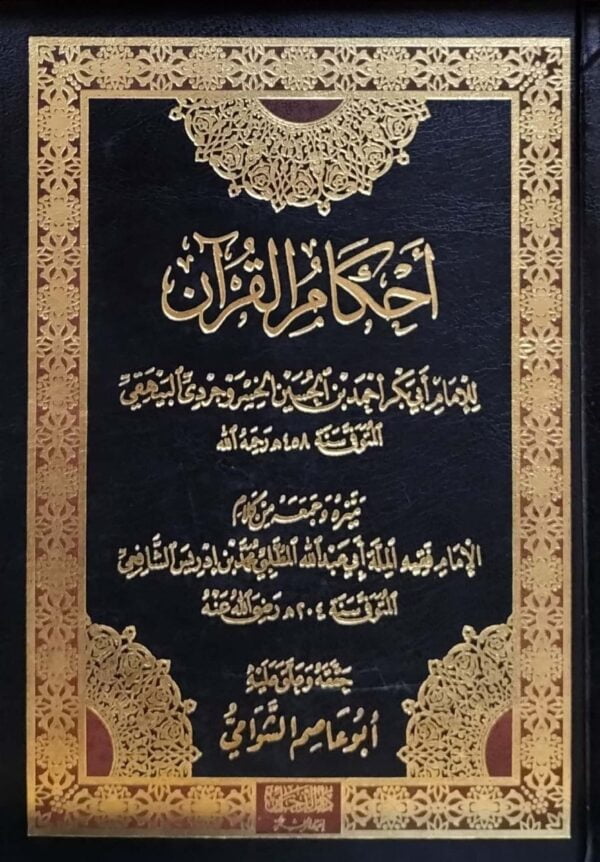 أَحْكَامُ القُرْآن
لِلإِمَامِ أَبِي بَكْر أَحْمَدَ بْنِ الحُسَيْنِ الخُسْرَوْجِرْدِيِّ البَيْهَقِيِّ
المُتَوَفَّى سَنَة ٤٥٨هـ رَحِمَهُ الله
مَيَّزَهُ وَجَمَعَهُ مِنْ كَلَامِ
الإِمَامِ فَقِيهِ المِلَّةِ أَبِي عَبْدِ اللهِ المُطَّلِبِيِّ مُحَمَّدِ بْنِ إِدْرِيسَ الشَّافِعِيِّ
المُتَوَفَّى سَنَة ٢٠٤هـ رَضِيَ اللهُ عَنْهُ
حَقَّقَهُ وَعَلَّقَ عَلَيْهِ
أَبُو عَاصِم الشَّوَامِيُّ